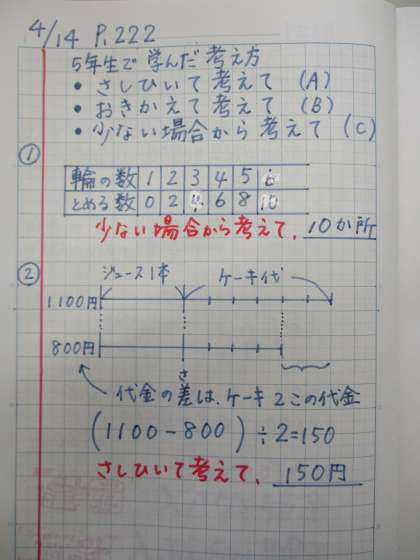 4/14 P.222
5年生で学んだ考え方
• さしひいて考えて (A)
• おきかえて考えて (B)
• 少ない場合から考えて (C)
①
輪の数 1 2 3 4 5 6
とめる数 0 2 4 6 8 10
少ない場合から考えて. 10か所
②
ジュース1本 ケーキ代
1100円
800円
さ
代金の差は、ケーキ2この代金
(1100-800)÷2=150
さしひいて考えて. 150円